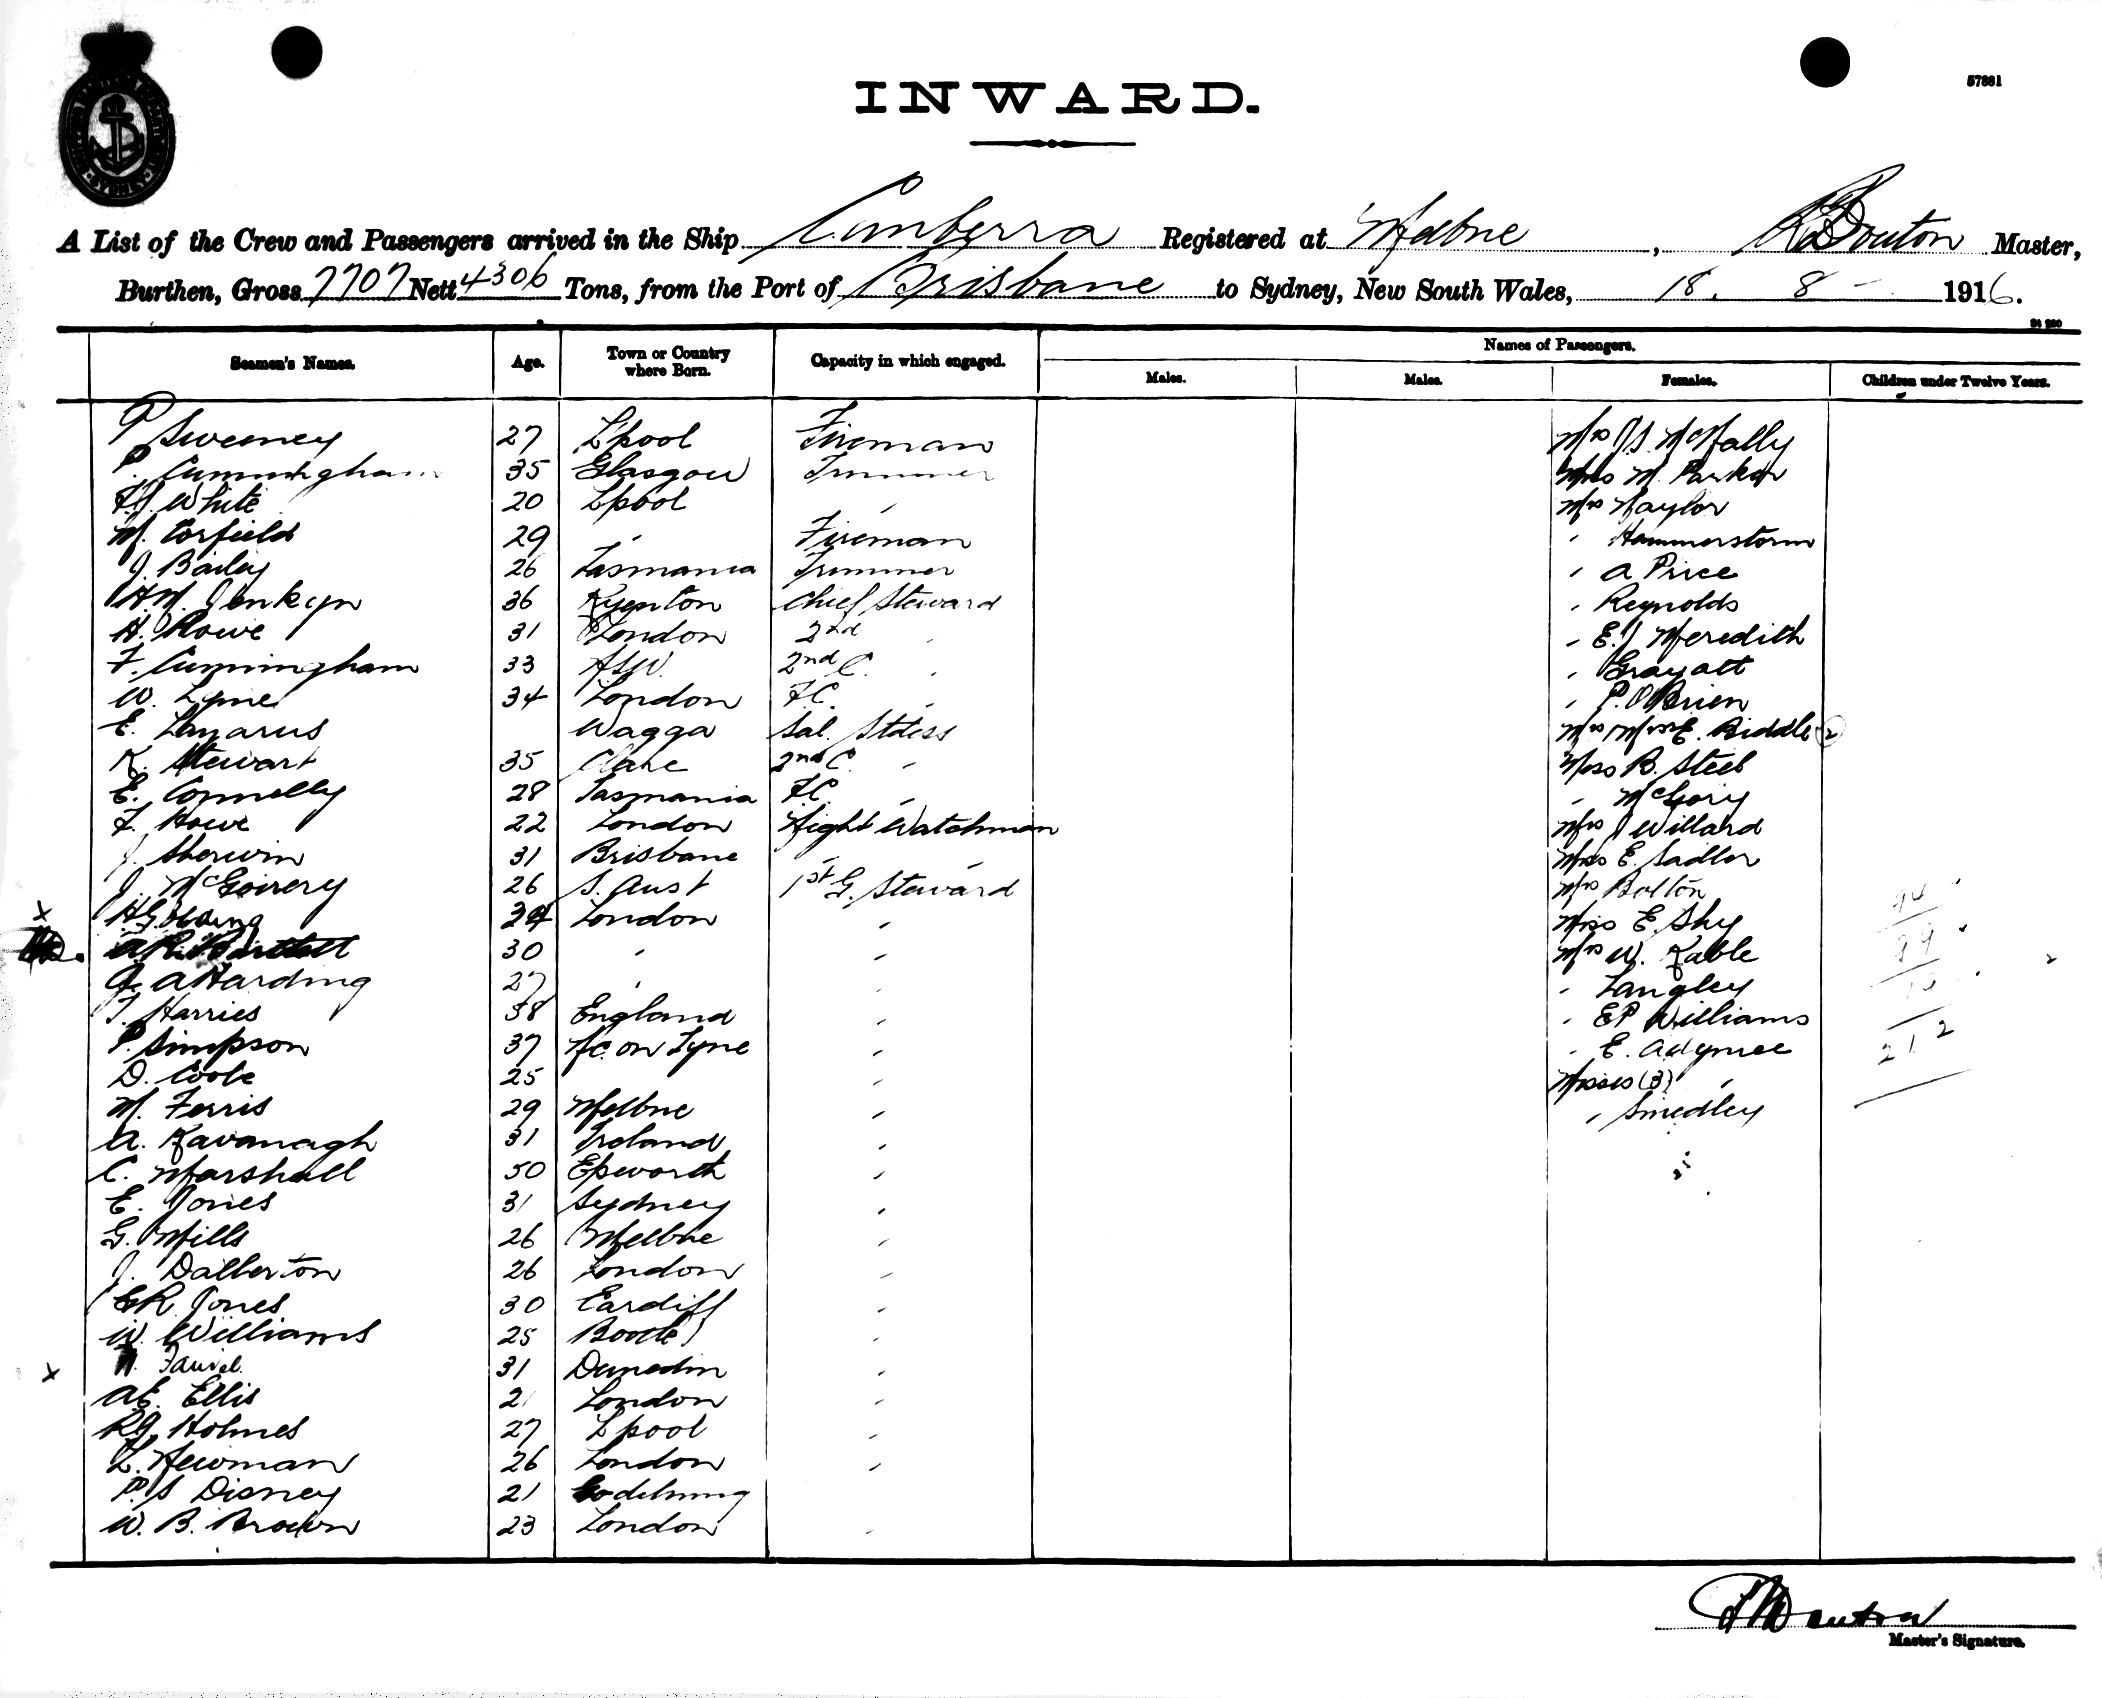 57881
INWARD.
A List of the Crew and Passengers arrived in the Ship Canberra Registered at Melbne, Master,
Burthen, Gross 7707 Nett 4306 Tons, from the Port of Brisbane to Sydney, New South Wales, 18. 8 - 1916.
Names of Passengers.
Seamen's Names. Age. Town or Country where Born. Capacity in which engaged. Males. Males. Females. Children under Twelve Years.
P Sweeney 27 L'pool Fireman Mrs J.S. McNally
P. Cunningham 35 Glasgow Trimmer Miss M. Parker
White 20 Lpool " Mrs Naylor
M. Corfield 29 " Fireman " Hammerstorm
J. Bailey 26 Tasmania Trimmer " A Price
H.M. Jenkyn 36 Kyenton Chief Steward " Reynolds
H. Rowe 31 London 2nd " " E.J Meredith
F. Cunningham 33 NSW. 2nd C. " " Grayatt
W. Lyne 34 London F.C. " " P. O'Brien
E. Lazarus Wagga Sal. Stdess E. Biddle (2)
K. Stewart 35 Clare 2nd C. " Miss B. Steel
E. Connelly 28 Tasmania F.C. " " McGory
F. Howe 22 London Night Watchman Mrs J Willard
J. Sherwin 31 Brisbane " " Miss E. Sadler
J. McGoirery 26 S. Aust 1st G. Steward Mrs Bolton
x H. Golding 34 London " Miss E. Shy
A.R. Bartlett 30 " " Mrs W. Kable
J. A Harding 27 " " " Langley
T. Harries 38 England " " EP Williams
P. Simpson 37 Nc. on Tyne " " E.
D. Coole 25 " Misses (3) "
M. Ferris 29 Melbne " " Smedley
A. Kavanagh 31 Ireland "
C. Marshall 50 Epworth "
E. Jones 31 Sydney "
G. Mills 26 Melbne "
J. Dalberton 26 London "
R. Jones 30 Cardiff "
W. Williams 25 Bootle "
x 31 Dunedin "
A.E. Ellis 21 London "
R.J. Holmes 27 Lpool "
L. Newman 26 London "
P. S Disney 21
W. B. Brown 23 London "
212
Master's Signature.